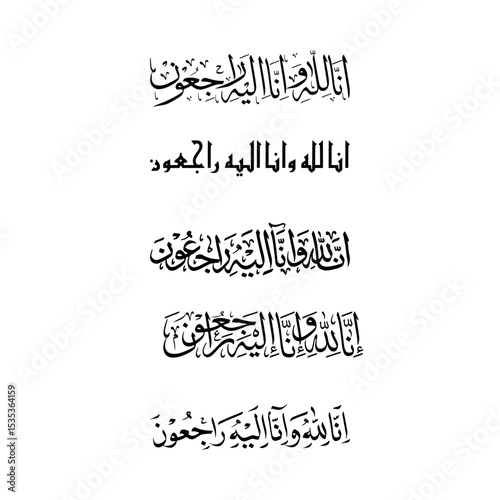 انا لله وانا اليه راجعون
انا لله وانا اليه راجعون
انا لله وانا اليه راجعون
إنا لله وإنا إليه راجعون
انا لله وانا اليه راجعون
Adobe Stock | #1535364159